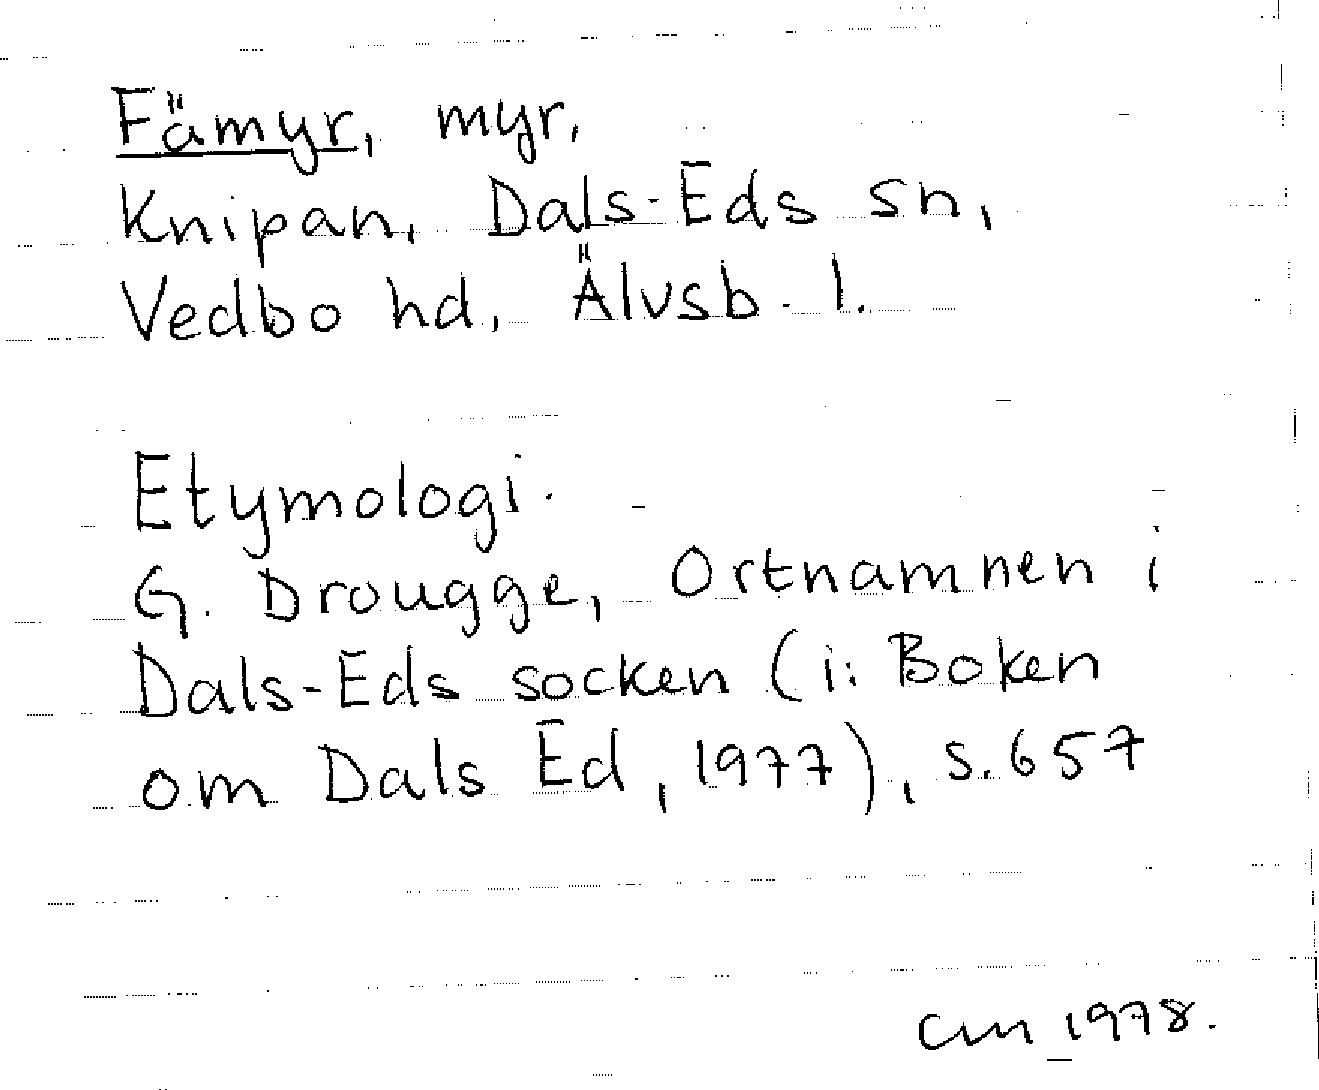 Fämyr, myr,
Knipan, Dals-Eds sn,
Vedbo hd, Älvsb. l.
Etymologi.
G. Drougge, Ortnamnen i
Dals-Eds socken (i: Boken
om Dals Ed, 1977), s. 657
CM 1978.